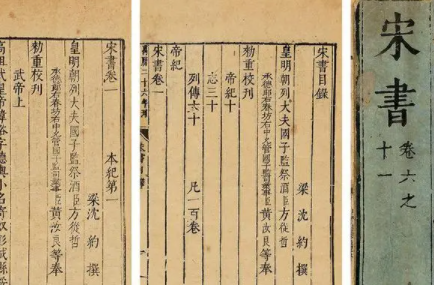 宋書卷一 本紀第一
梁沈約撰
皇明朝列大夫國子監祭酒臣方從哲
承德郎右春坊右中允管國子監司業事臣黃汝良等奉
勑重校刊
武帝上
宋書目錄
梁沈約撰
皇明朝列大夫國子監祭酒臣方從哲
承德郎右春坊右中允管國子監司業事臣黃汝良等奉
勑重校刊
帝紀十
志三十
列傳六十 凡一百卷
帝紀
宋書卷一
萬曆二十六年刊
宋書
卷六之
十一